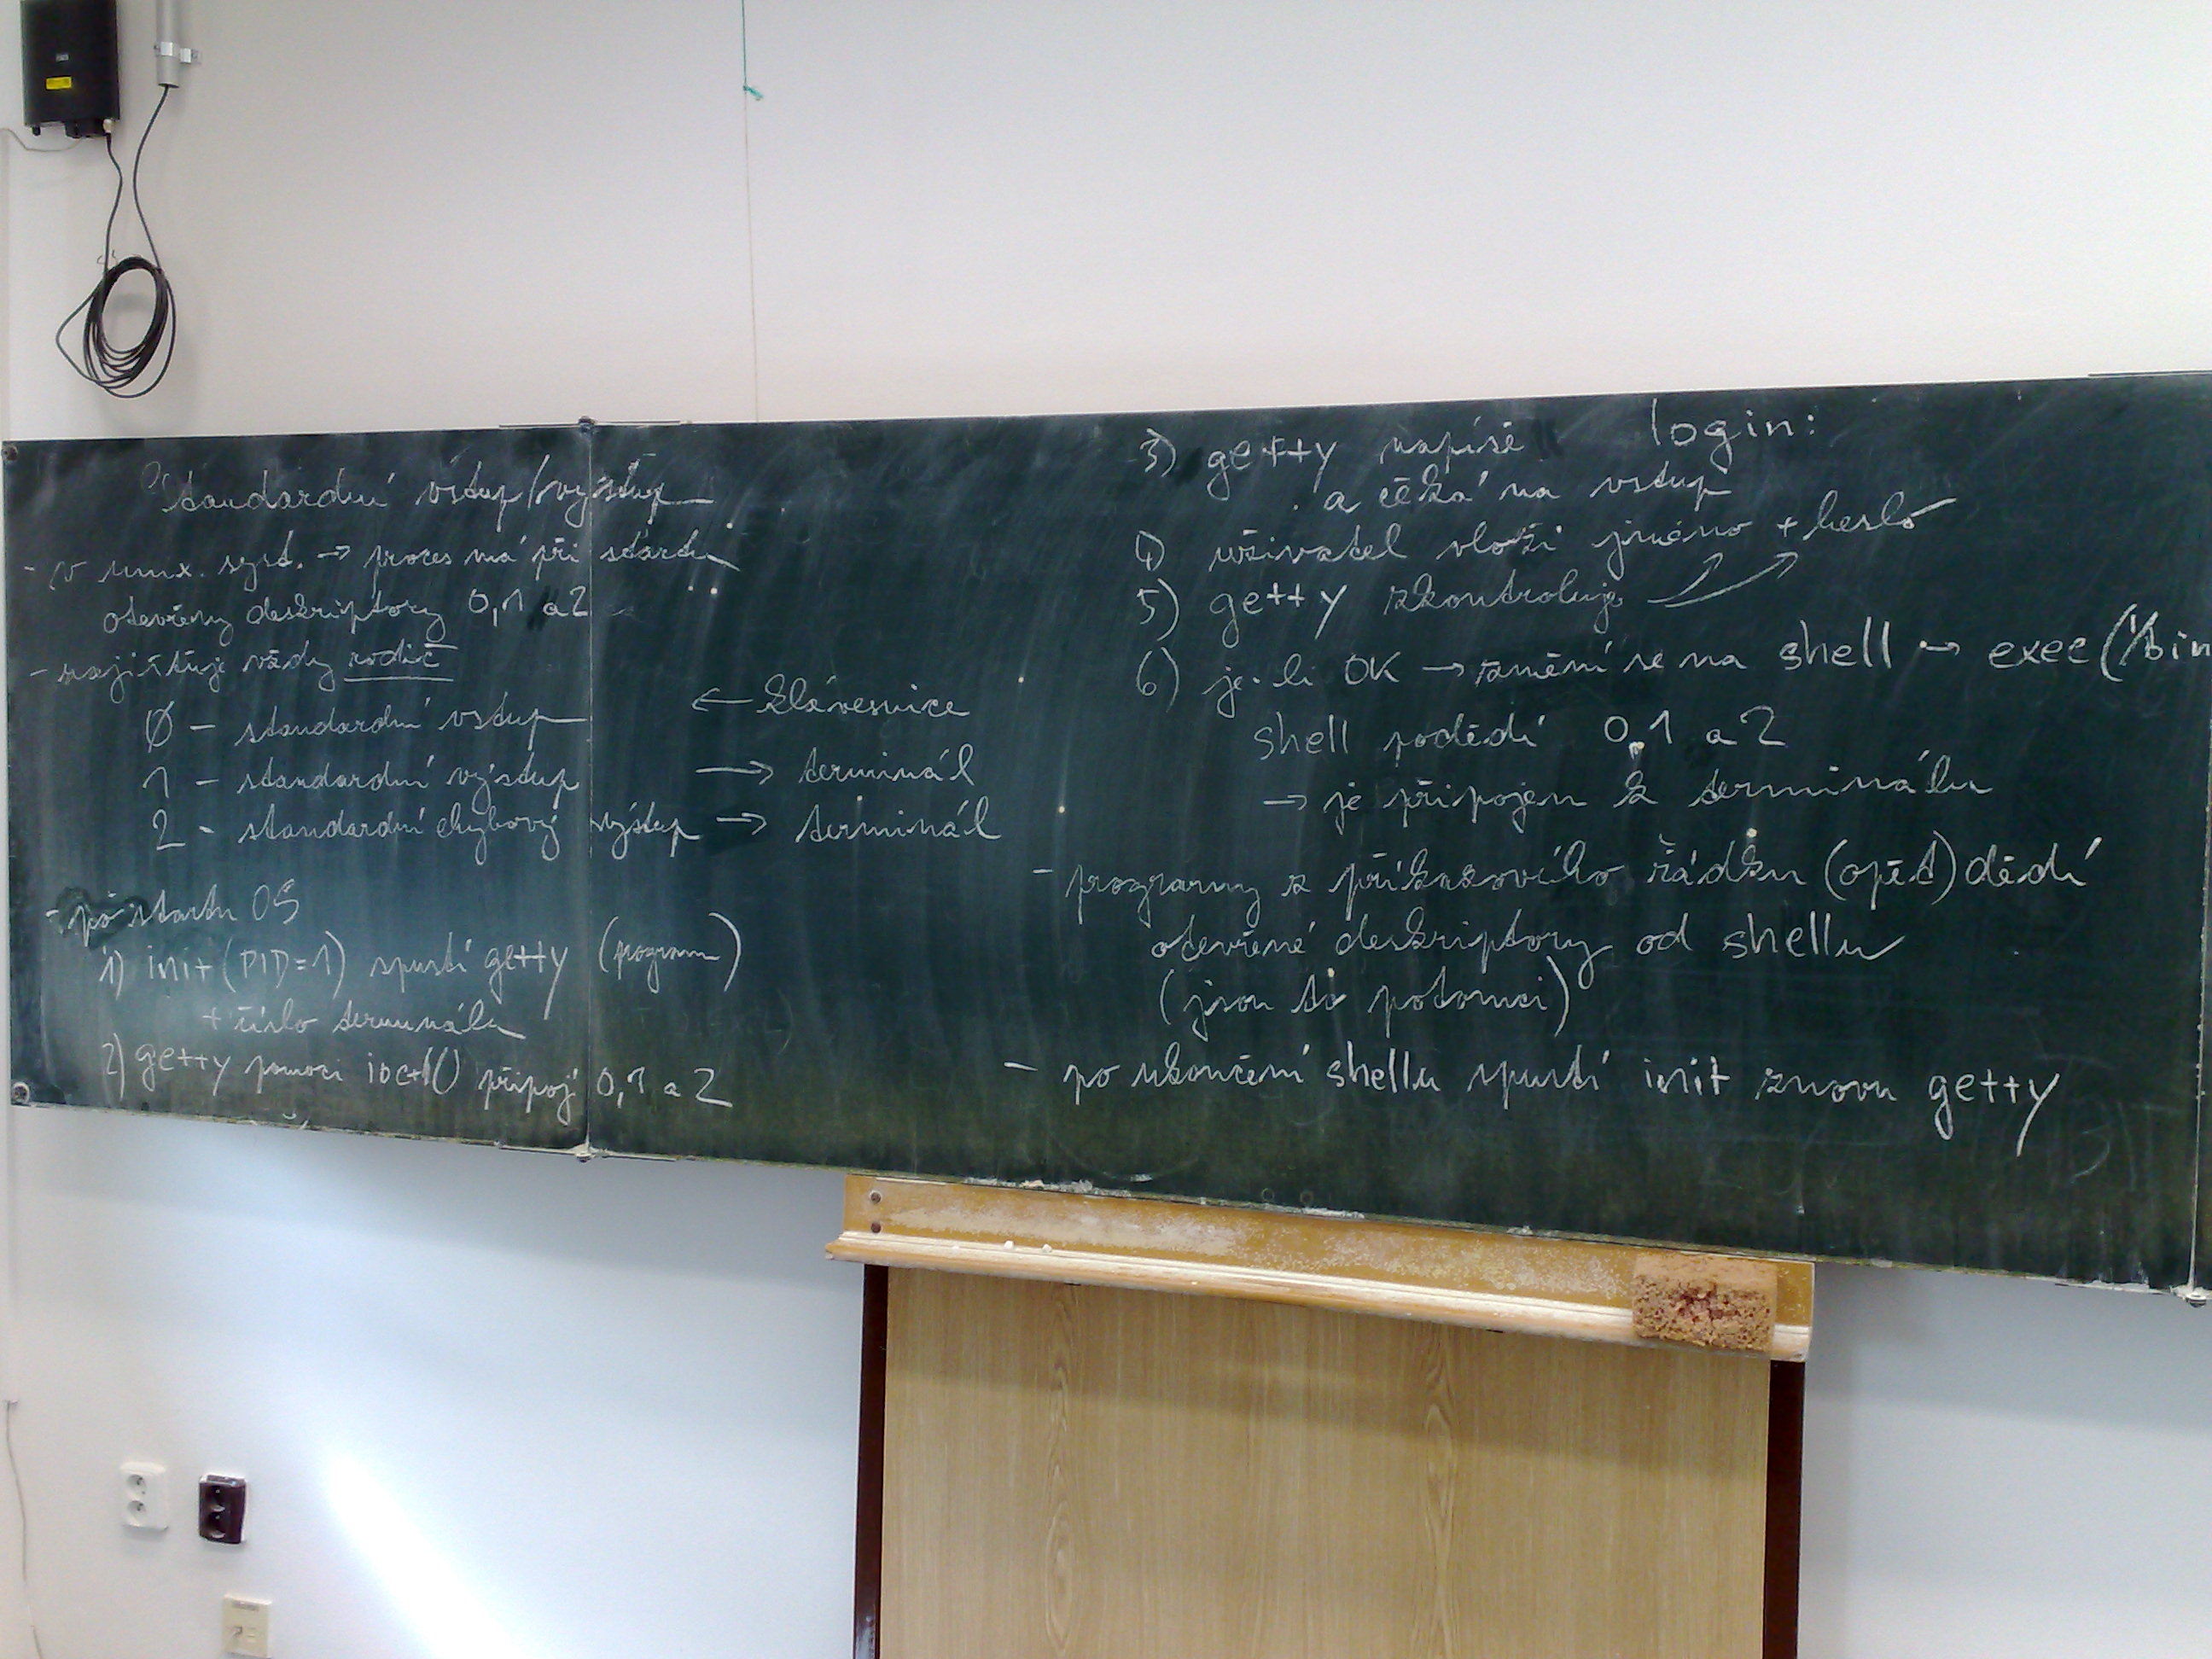 Standardní vstup/výstup
- v unix. syst. → proces má při startu
otevřeny deskriptory 0,1 a 2
- zajišťuje vždy rodič
0 - standardní vstup ← klávesnice
1 - standardní výstup → terminál
2 - standardní chybový výstup → terminál
- po startu OS
1) init (PID=1) spustí getty (program)
+ číslo terminálu
2) getty pomocí ioctl() připojí 0,1 a 2
3) getty napíše login:
a čeká na vstup
4) uživatel vloží jméno + heslo
5) getty zkontroluje
6) je-li OK → změní se na shell → exec("/bin
shell podědí 0,1 a 2
→ je připojen k terminálu
- programy z příkazového řádku (opět) dědí
otevřené deskriptory od shellu
(jsou to potomci)
- po ukončení shellu spustí init znovu getty